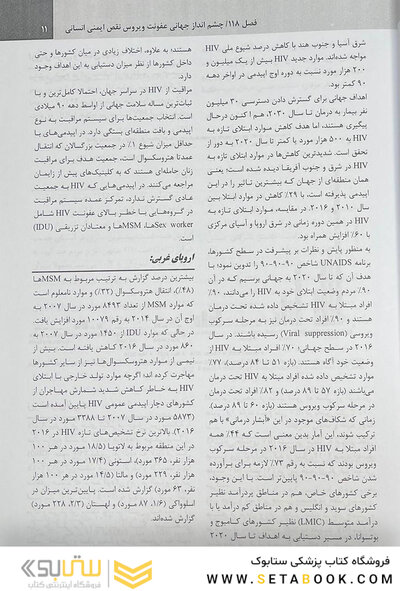 فصل ۱۱۸/ چشم انداز جهانی عفونت ویروس نقص ایمنی انسانی
۱۱
شرق آسیا و جنوب هند با کاهش درصد شیوع ملی HIV
مواجه شده‌اند. موارد جدید HIV بیش از یک میلیون و
۲۰۰ هزار مورد نسبت به دوره اوج اپیدمی در اواخر دهه
۹۰ کمتر بود.
اهداف جهانی برای گسترش دادن دسترسی ۳۰ میلیون
نفر بیمار به درمان تا سال ۲۰۳۰، هم اکنون درحال
پیگیری هستند، اما هدف کاهش موارد ابتلای تازه به
HIV به ۵۰۰ هزار مورد یا کمتر تا سال ۲۰۲۰ به دور از
تحقق است. شدیدترین کاهش‌ها در موارد ابتلای تازه به
HIV در شرق و جنوب آفریقا دیده شده است؛ یعنی
همان منطقه‌ای از جهان که بیشترین تاثیر را در این
اپیدمی پذیرفته است، با ۲۹٪ کاهش در موارد ابتلا بین
۲۰۱۰ و ۲۰۱۶. در مقایسه، موارد ابتلای تازه به
HIV در همین دوره زمانی در شرق اروپا و آسیای مرکزی
با ۶۰٪ افزایش همراه بود.
به منظور پایش و نظرات بر پیشرفت در سطح کشورها،
برنامه UNAIDS شاخص ۹۰-۹۰-۹۰ را تدوین نمود؛ با
هدف آن که تا سال ۲۰۲۰ به جهانی برسیم که در آن
۹۰٪ مردم وضعیت ابتلای خود به HIV را می‌دانند، ۹۰٪
افراد مبتلا به HIV تشخیص داده شده تحت درمان
هستند و ۹۰٪ افراد تحت درمان نیز به مرحله سرکوب
ویروسی (Viral suppression) رسیده باشند. در سال
۲۰۱۶ در سطح جهانی؛ ۷۰٪ افراد مبتلا به HIV از
وضعیت خود آگاه هستند. (بازه ۵۱ تا ۸۴ درصد)، ۷۷٪
موارد تشخیص داده شده افراد مبتلا به HIV تحت درمان
می‌باشند (بازه ۵۷ تا ۸۹ درصد) و ۸۲٪ افراد تحت درمان
در مرحله سرکوب ویروس هستند (بازه ۶۰ تا ۸۹ درصد).
زمانی که شکاف‌های موجود در این «آبشار درمانی» با هم
ترکیب شوند، این آمار بدین معنی است که ۴۴٪ همه
افراد مبتلا به HIV در سال ۲۰۱۶ در مرحله سرکوب
ویروس بودند که نسبت به رقم ۷۳٪ لازمه برای برآورده
شدن شاخص ۹۰-۹۰-۹۰ پایین‌تر است. با این وجود،
برخی کشورهای خاص، هم در مناطق پردرآمد نظیر
کشورهای سوید و انگلیس و هم در مناطق کم درآمد یا با
درآمد متوسط (LMIC) نظیر کشورهای کامبوج و
بوتوانا، در مسیر دستیابی به اهداف تا سال ۲۰۲۰
هستند؛ به علاوه، اختلاف زیادی در میان کشورها و حتی
داخل کشورها از نظر میزان دستیابی به این اهداف وجود
دارد.
مراقبت از HIV در سراسر جهان، احتمالا کامل‌ترین و با
ثبات‌ترین مساله سلامت جهانی از اواسط دهه ۹۰ میلادی
است. انتخاب جمعیت‌ها برای سیستم مراقبت به نوع
اپیدمی و بافت منطقه‌ای بستگی دارد. در اپیدمی‌های با
حداقل میزان شیوع ۱٪ در جمعیت بزرگسالان که انتقال
عمدتا هتروسکوال است، جمعیت هدف برای مراقبت
زنان حامله‌ای هستند که به کلینیک‌های پیش از زایمان
مراجعه می‌کنند. در اپیدمی‌هایی که HIV به جمعیت
عادی گسترش ندارد، تمرکز عمده سیستم مراقبت
در گروه‌هایی با خطر بالای عفونت HIV شامل
Sex workerها، MSMها و معتادان تزریقی (IDU)
است.
اروپای غربی:
بیشترین درصد گزارش به ترتیب مربوط به MSMها
(۴۸٪)، انتقال هتروسکوال (۳۲٪) و موارد نامعلوم است
که موارد MSM از تعداد ۸۴۹۳ مورد در سال ۲۰۰۷ به
اوج آن در سال ۲۰۱۴ به رقم ۱۰۰۷۹ مورد افزایش یافت.
در حالی که موارد IDU از ۱۴۵۰ مورد در سال ۲۰۰۷ به
۸۶۰ مورد در سال ۲۰۱۶ کاهش یافته است. بیش از
نیمی از موارد هتروسکوال‌ها نیز از سایر کشورها
مهاجرت کرده اند؛ اگرچه موارد تولد خارجی با ابتلای
HIV به خاطر کاهش شدن شمارش مهاجران از
کشورهای دچار اپیدمی عمومی HIV پایین آمده است
(۵۸۷۳ مورد در سال ۲۰۰۷ تا ۳۳۸۸ مورد در سال
۲۰۱۶). بالاترین نرخ تشخیص‌های تازه HIV در ۲۰۱۶
در این منطقه مربوط به لاتویا (۱۸/۵ مورد در هر ۱۰۰
هزار نفر، ۳۶۵)، استونی (۱۷/۴ مورد در هر ۱۰۰
هزار نفر، ۲۲۹ مورد) و مالتا (۱۴/۵ مورد در هر ۱۰۰ هزار
نفر، ۶۳ مورد) گزارش شده است. پایین‌ترین میزان در
اسلواکی (۱/۶، ۸۷ مورد) و لهستان (۲/۳، ۲۲۸ مورد)
گزارش شده‌اند.
ستابوک
فروشگاه اینترنتی کتاب
فروشگاه کتاب پزشکی ستابوک
WWW.SETABOOK.COM